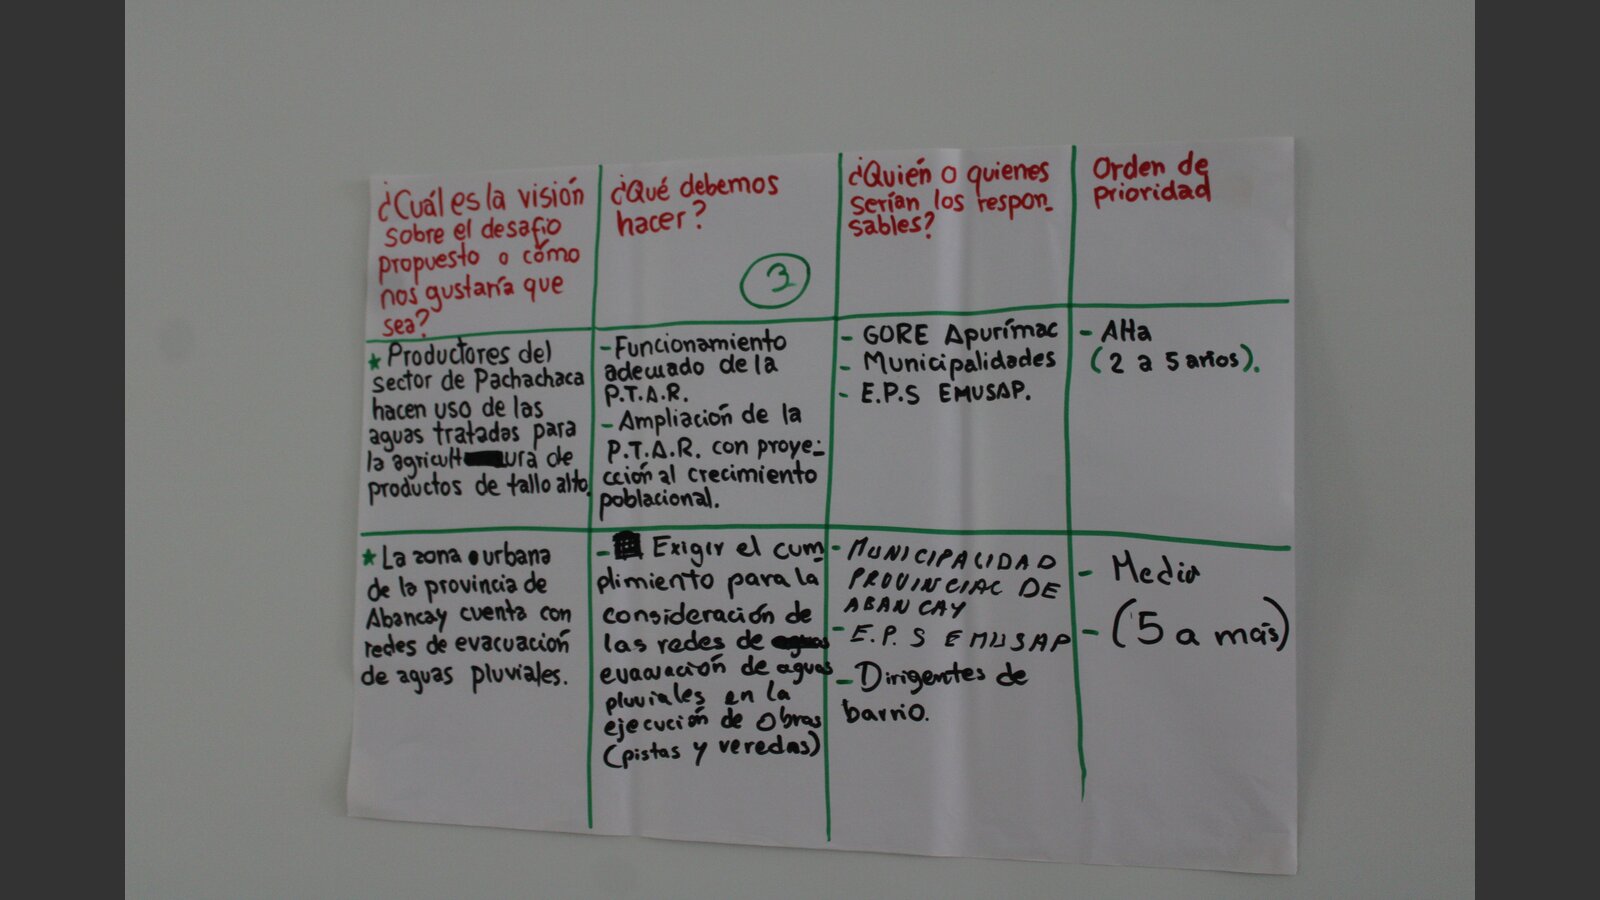 ¿Cuál es la visión
sobre el desafio
propuesto o cómo
nos gustaría que
sea?
¿Qué debemos
hacer?
3
¿Quién o quienes
serían los respon-
sables?
Orden de
prioridad
* Productores del
sector de Pachachaca
hacen uso de las
aguas tratadas para
la agricultura de
productos de tallo alto.
- Funcionamiento
adecuado de la
P.T.A.R.
- Ampliación de la
P.T.A.R. con proye-
cción al crecimiento
poblacional.
- GORE Apurímac
- Municipalidades
- E.P.S EMUSAP.
- Alta
(2 a 5 años).
* La zona urbana
de la provincia de
Abancay cuenta con
redes de evacuación
de aguas pluviales.
- Exigir el cum-
plimiento para la
consideración de
las redes de
evacuación de aguas
pluviales en la
ejecución de obras
(pistas y veredas)
- MUNICIPALIDAD
PROVINCIAL DE
ABANCAY
- E.P.S EMUSAP
- Dirigentes de
barrio.
- Media
- (5 a más)